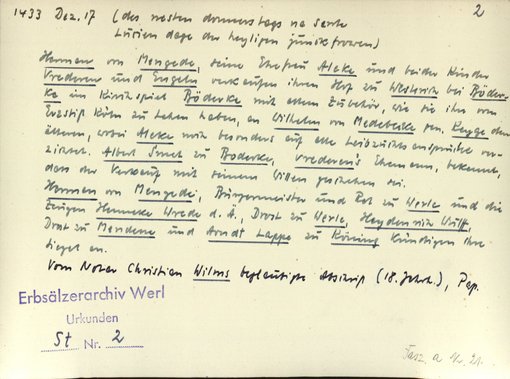 2
1433 Dez. 17 (des nesten donnerstags na sente
Lucien dage der heyligen junckfrowen)
Herman von Mengede, seine Ehefrau Aleke und beider Kinder
Vrederun und Engeln verkaufen ihren Hof zu Westrich bei Böder-
ke im Kirchspiel Böderke mit allem Zubehör, wie sie ihn vom
Erzstift Köln zu Lehen haben, an Wilhelm von Medebecke gen. Kegge den
älteren, wobei Aleke noch besonders auf alle Leibzuchtsansprüche ver-
zichtet. Albert Smet zu Boderke, Vrederun's Ehemann, bekennt,
dass der Verkauf mit seinem Willen geschehen sei.
Herman von Mengede, Bürgermeister und Rat zu Werle und die
Zeugen Henneke Wrede d. Ä., Drost zu Werle, Heydenrich Wulff,
Drost zu Mendene und Arndt Lappe zu Röning kündigen ihre
Siegel an.
Vom Notar Christian Wilms beglaubigte Abschrift (18. Jahrh.), Pap.
Erbsälzerarchiv Werl
Urkunden
St Nr. 2